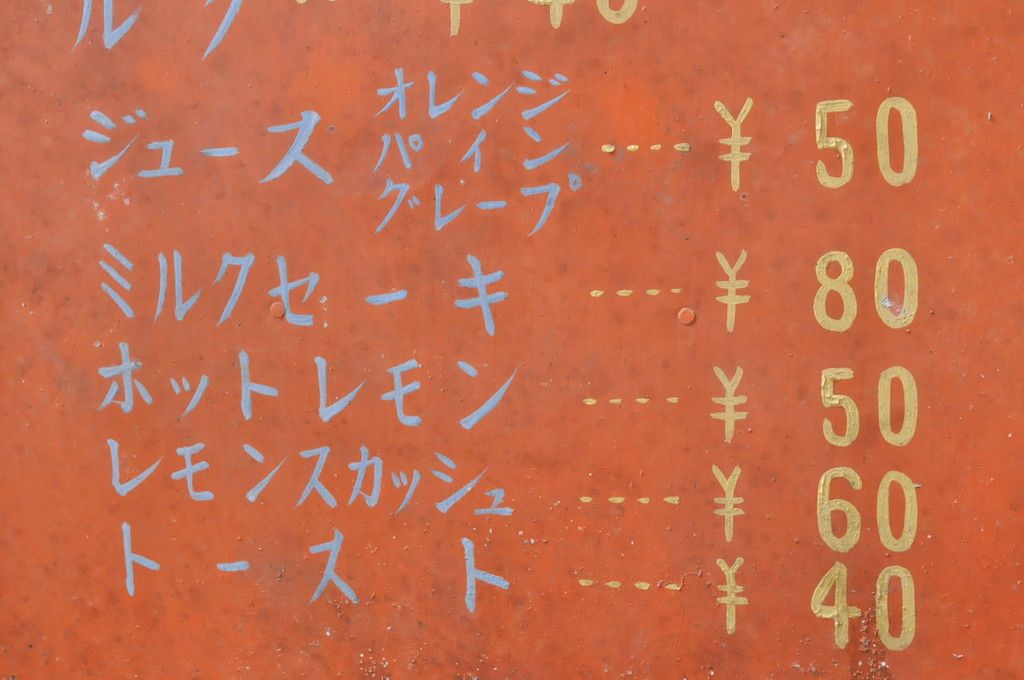 ルク ¥40
ジュース オレンジ パイン グレープ ---- ¥50
ミルクセーキ ---- ¥80
ホットレモン ---- ¥50
レモンスカッシュ ---- ¥60
トースト ---- ¥40